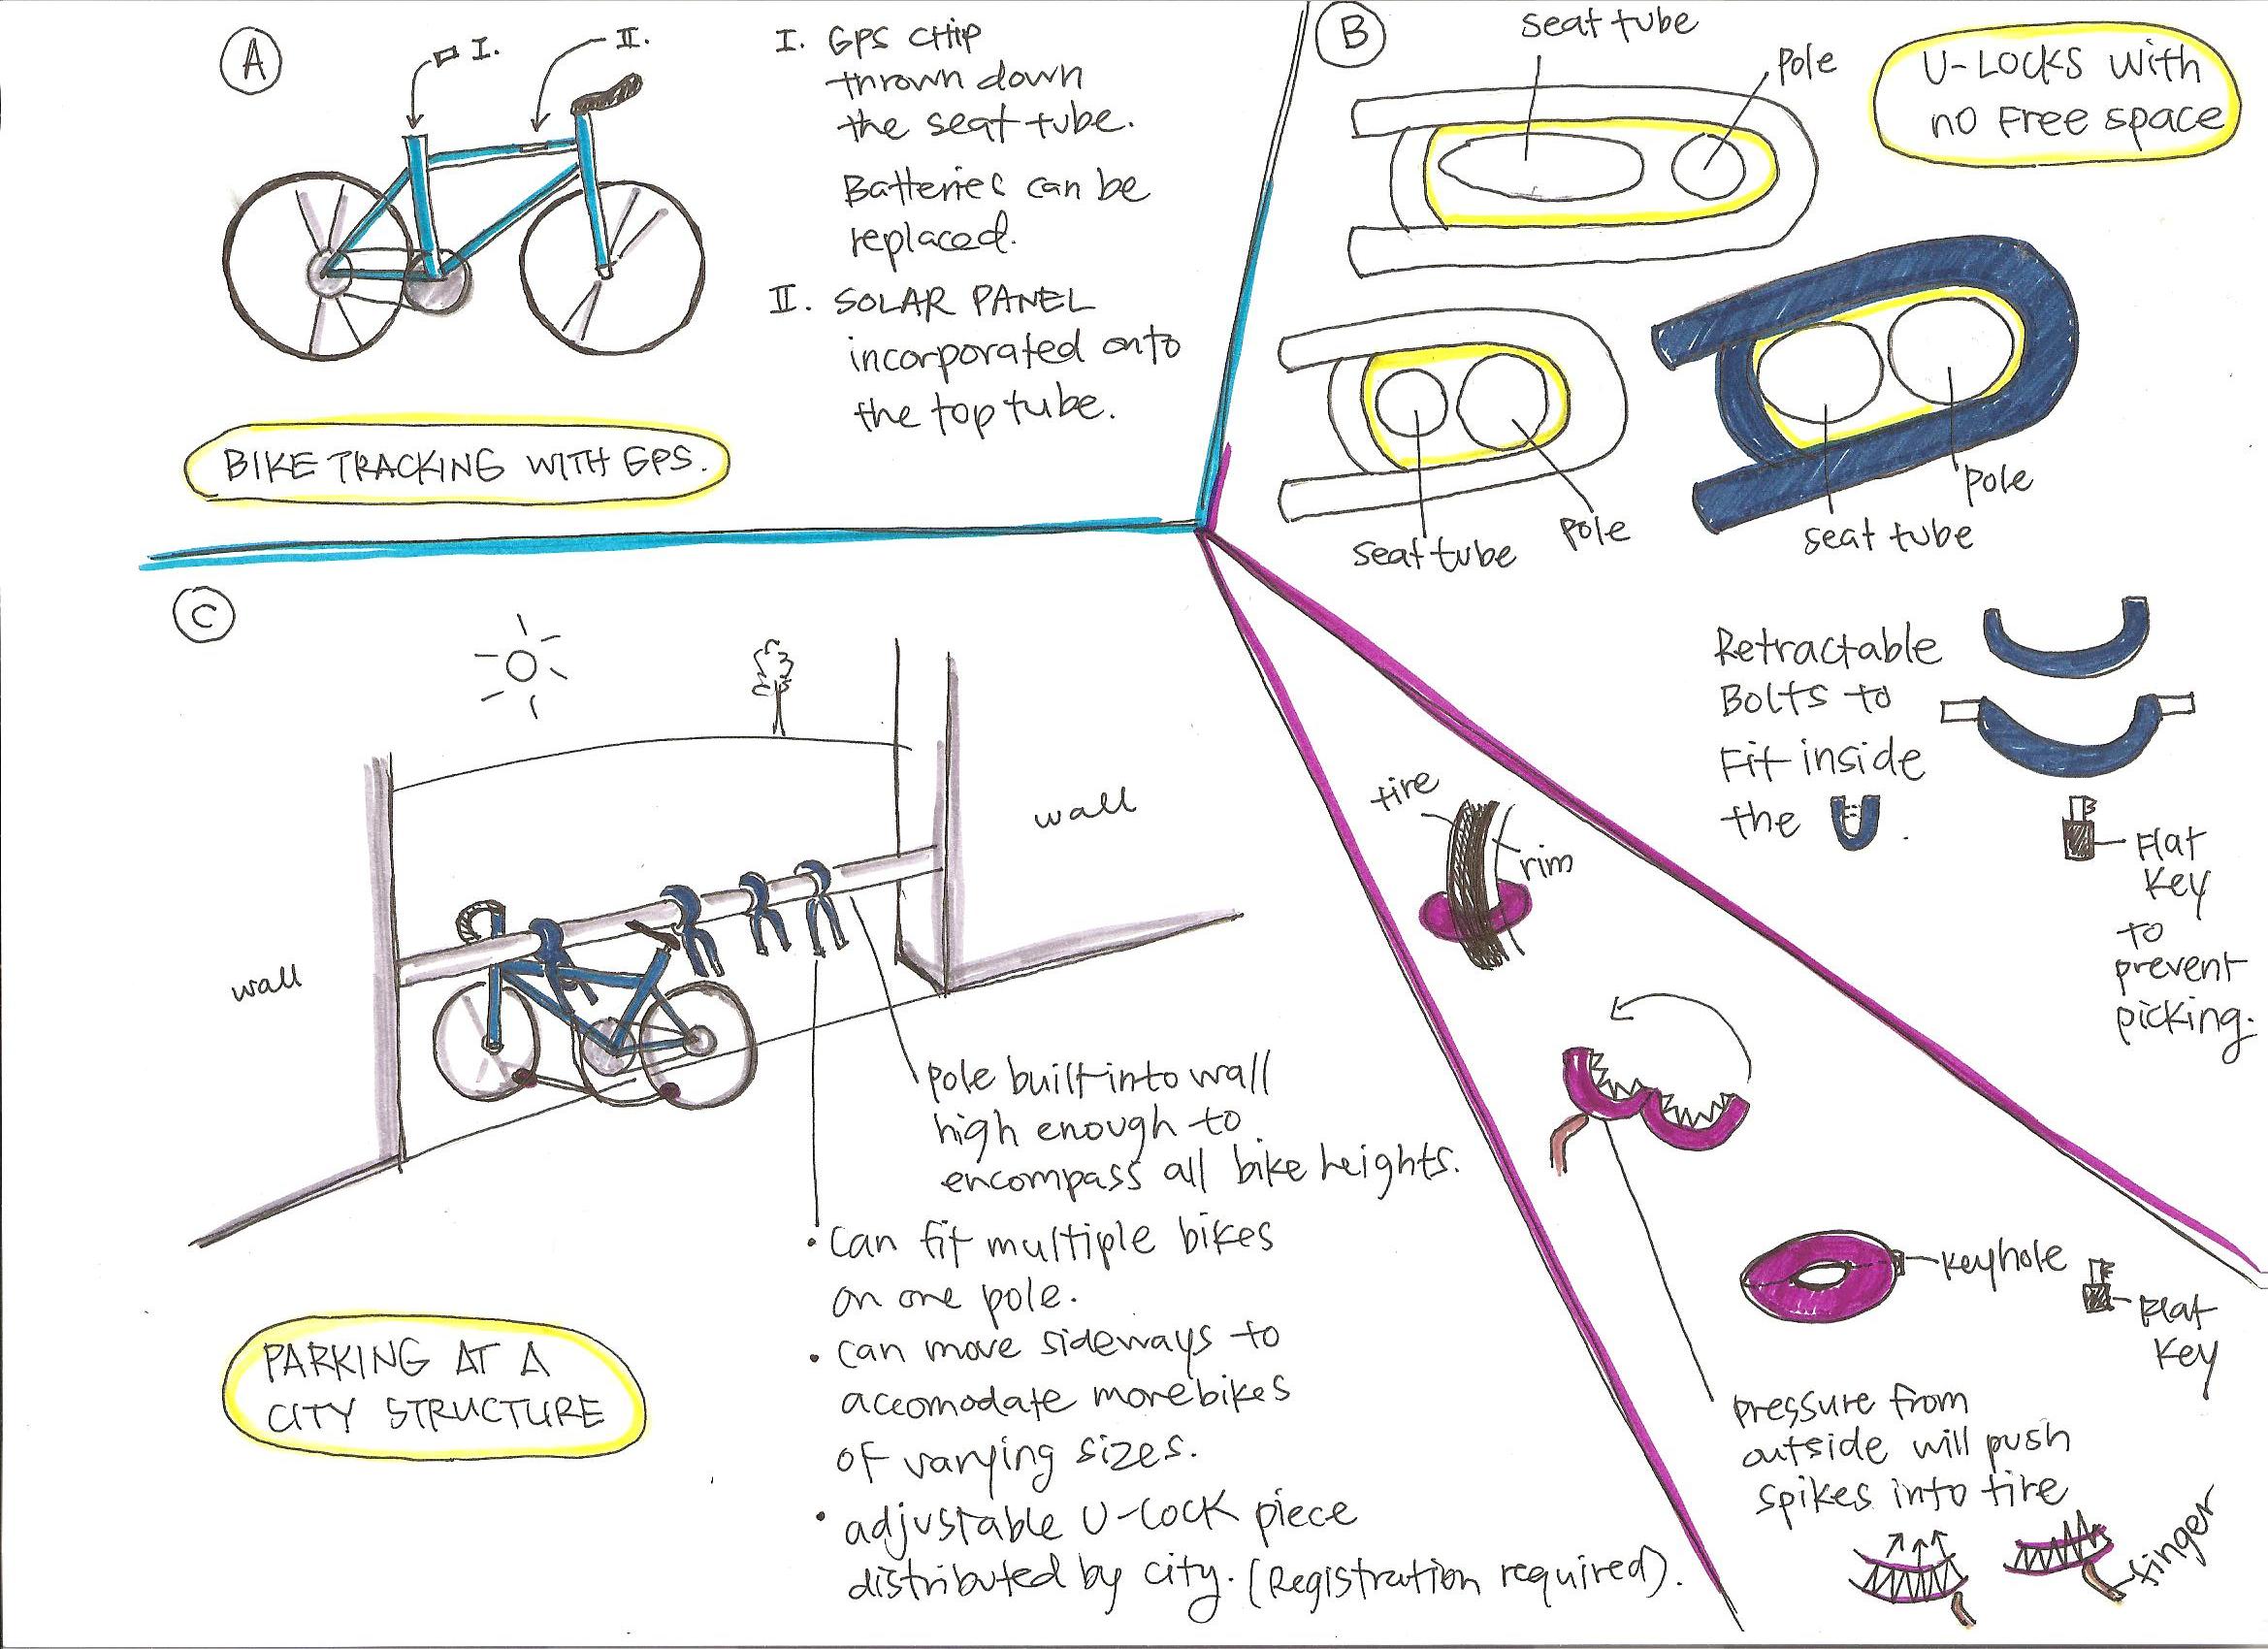 A
I.
II.
I. GPS CHIP
thrown down
the seat tube.
Batteries can be
replaced.
II. SOLAR PANEL
incorporated onto
the top tube.
BIKE TRACKING WITH GPS.
B
seat tube
Pole
U-LOCKS with
no Free space
seat tube
Pole
seat tube
Pole
Retractable
Bolts to
Fit inside
the U.
Flat
Key
to
prevent
picking.
tire
rim
keyhole
Flat
Key
pressure from
outside will push
spikes into tire
finger
C
wall
wall
pole built into wall
high enough to
encompass all bike heights.
• can fit multiple bikes
on one pole.
• can move sideways to
accomodate more bikes
of varying sizes.
• adjustable U-Lock piece
distributed by city. (Registration required).
PARKING AT A
CITY STRUCTURE